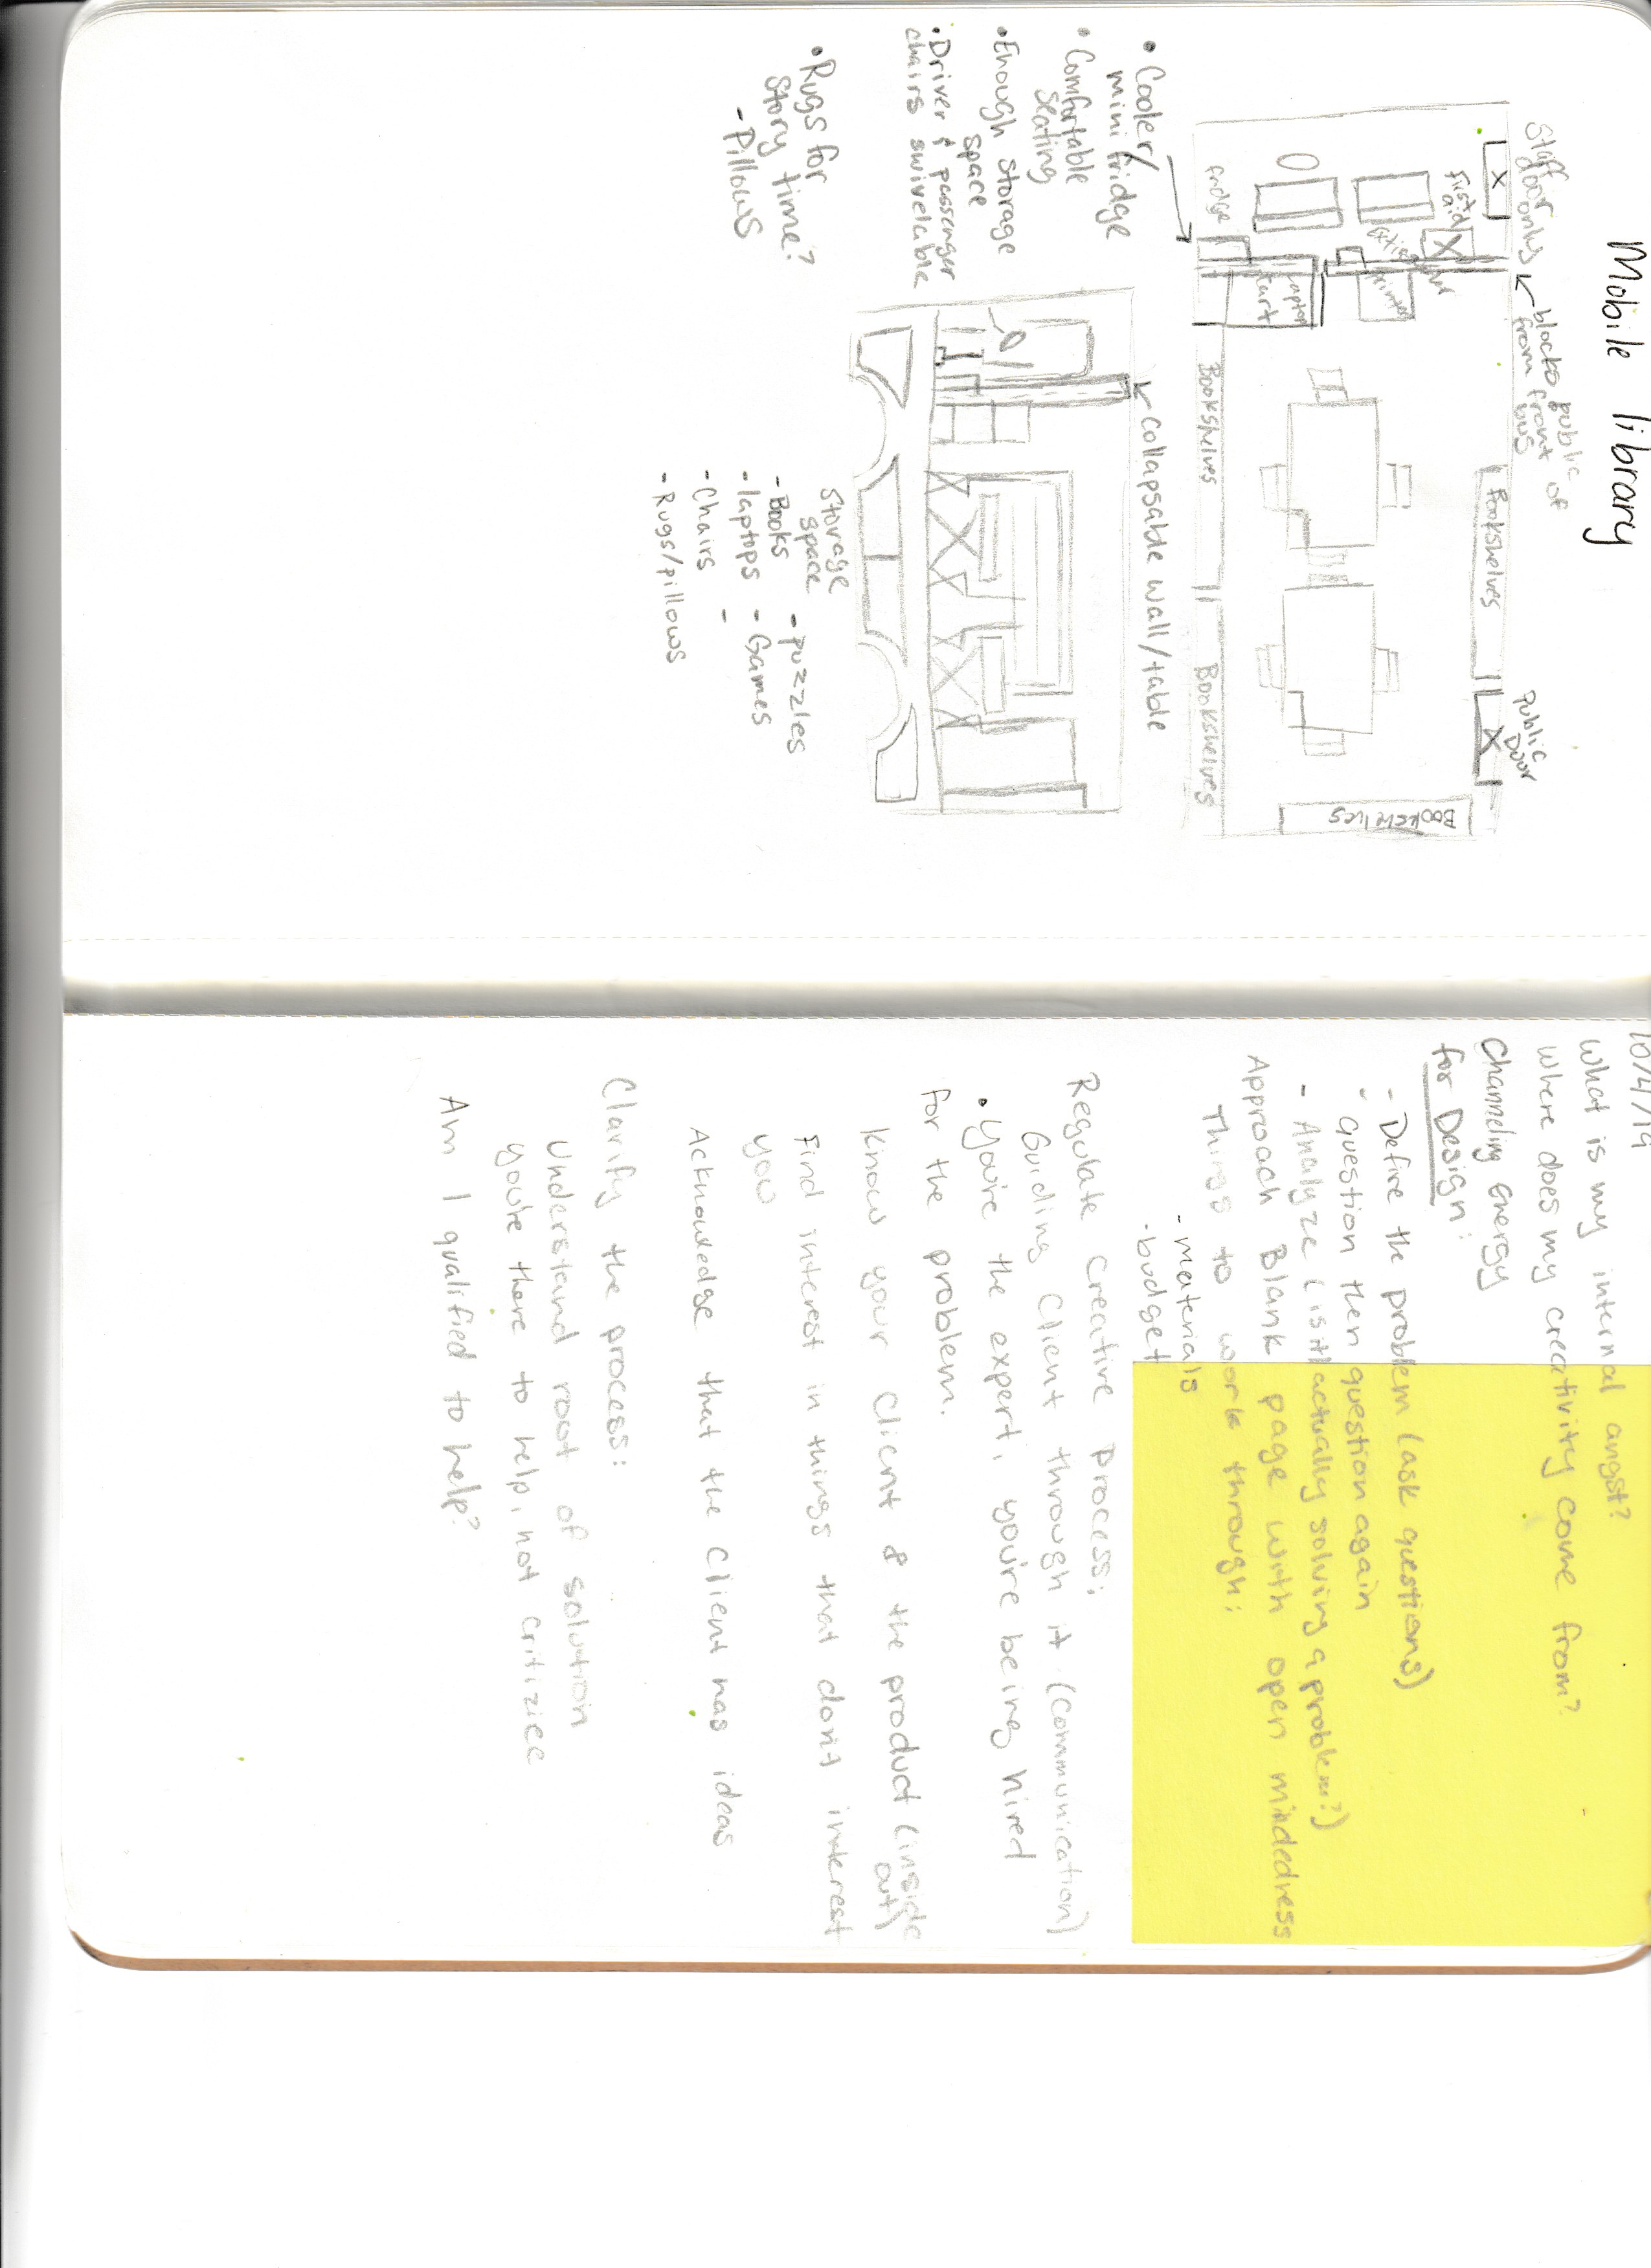 Mobile library
Staff
door only
blocks public
from front of
bus
Public
Door
first
aid
fridge
printer
laptop
cart
Bookshelves
Bookshelves
Bookshelves
Bookshelves
• Cooler/
mini fridge
• Comfortable
Seating
• Enough storage
space
• Driver & passenger
chairs swivelable
• Rugs for
Story time?
- Pillows
collapsable wall/table
Storage
space
- Books
- laptops
- Chairs
- Rugs/pillows
- puzzles
- Games
-
10/4/19
What is my internal angst?
Where does my creativity come from?
Channeling energy
for Design:
- Define the problem (ask questions)
- Question then question again
- Analyze (is it actually solving a problem?)
Approach Blank page with open mindedness
Things to work through:
- materials
- budget
Regulate creative process:
Guiding Client through it (communication)
• You're the expert, you're being hired
for the problem.
Know your client & the product (inside
out)
Find interest in things that don't interest
you
Acknowledge that the client has ideas
Clarify the process:
Understand root of solution
you're there to help, not critizice
Am I qualified to help?